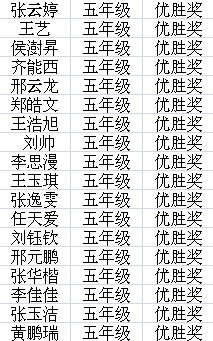 张云婷 五年级 优胜奖
王艺 五年级 优胜奖
侯澍昇 五年级 优胜奖
齐能西 五年级 优胜奖
邢云龙 五年级 优胜奖
郑皓文 五年级 优胜奖
王浩旭 五年级 优胜奖
刘帅 五年级 优胜奖
李思漫 五年级 优胜奖
王玉琪 五年级 优胜奖
张逸雯 五年级 优胜奖
任天爱 五年级 优胜奖
刘钰钦 五年级 优胜奖
邢元鹏 五年级 优胜奖
张华楷 五年级 优胜奖
李佳佳 五年级 优胜奖
张玉洁 五年级 优胜奖
黄鹏瑞 五年级 优胜奖